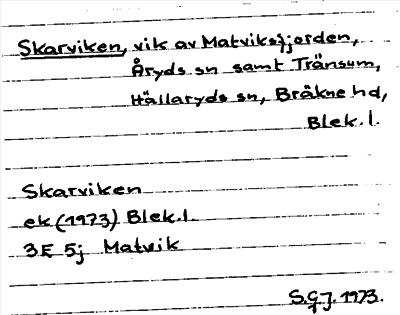 Skarviken, vik av Matviksfjorden,
Åryds sn samt Tränsum,
Hällaryds sn, Bräkne hd,
Blek. l.
Skarviken
ek (1973) Blek. l.
3E 5j Matvik
S.G.J. 1973.